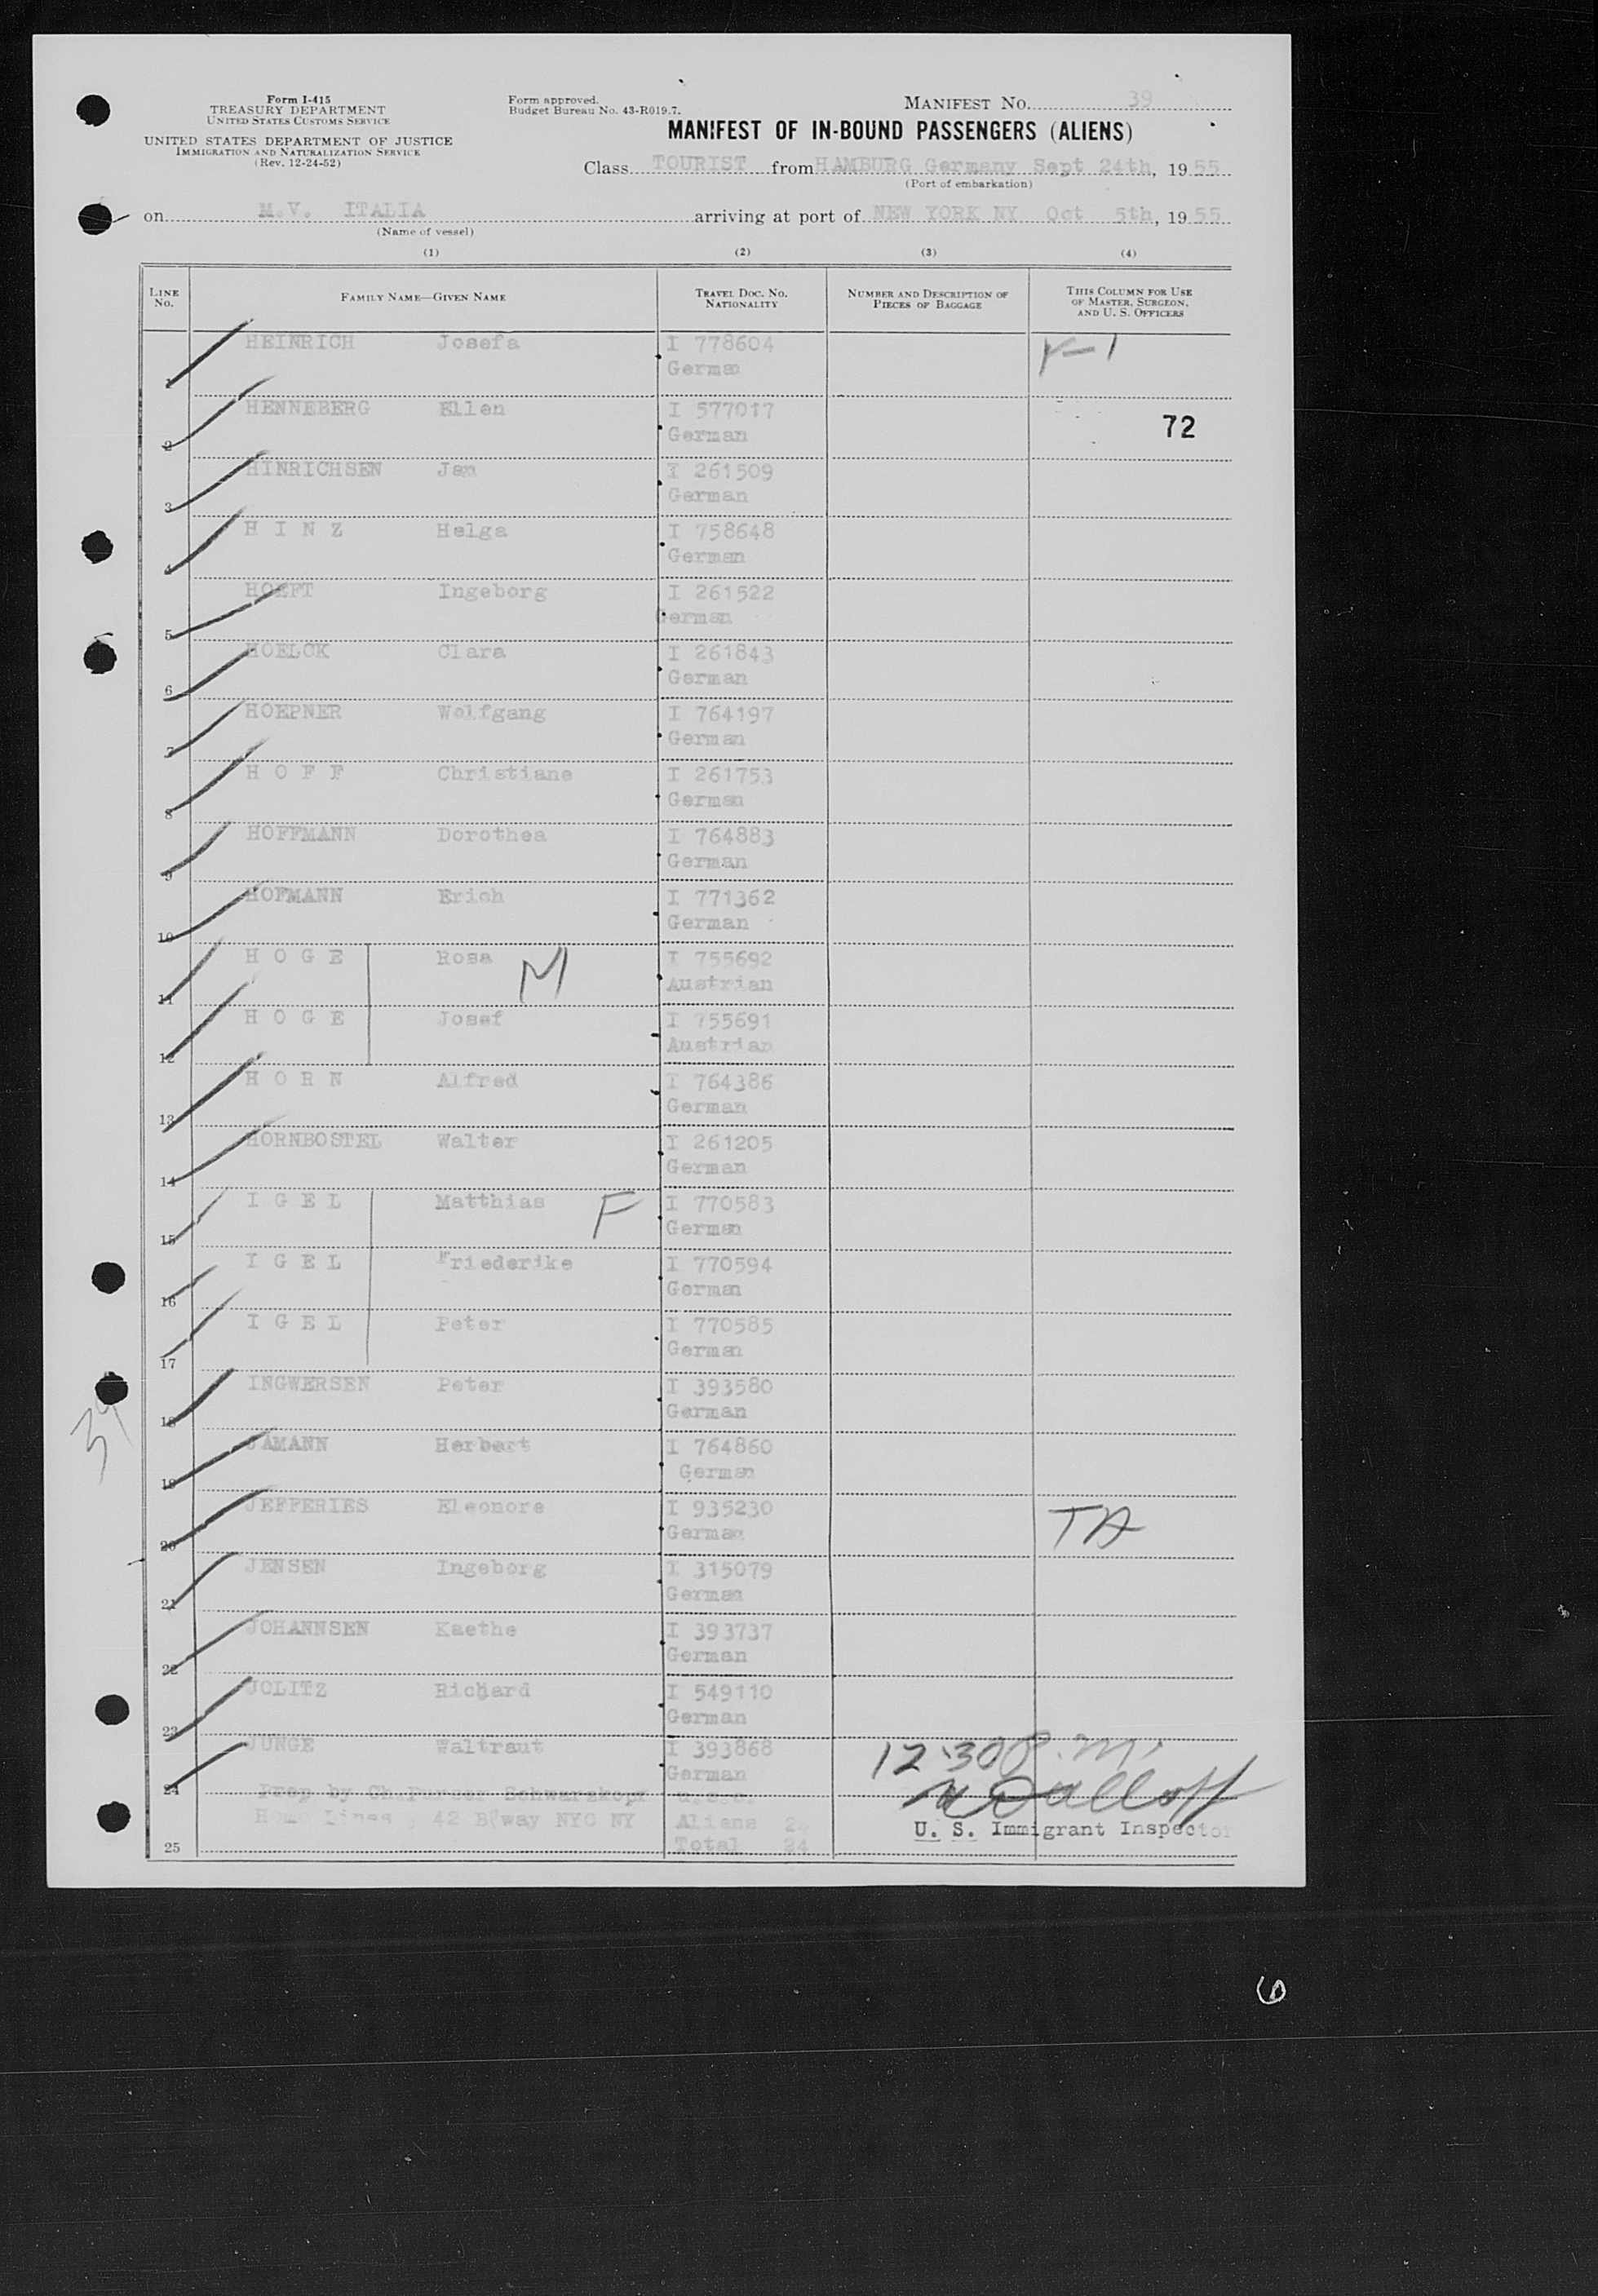 Form I-415
TREASURY DEPARTMENT
UNITED STATES CUSTOMS SERVICE
UNITED STATES DEPARTMENT OF JUSTICE
IMMIGRATION AND NATURALIZATION SERVICE
(Rev. 12-24-52)
Form approved.
Budget Bureau No. 43-R019.7.
MANIFEST NO. 39
MANIFEST OF IN-BOUND PASSENGERS (ALIENS)
Class TOURIST from HAMBURG Germany Sept 24th, 1955
(Port of embarkation)
on M.V. ITALIA arriving at port of NEW YORK NY Oct 5th, 1955
(Name of vessel)
(1) (2) (3) (4)
LINE NO. FAMILY NAME—GIVEN NAME TRAVEL DOC. NO. NATIONALITY NUMBER AND DESCRIPTION OF PIECES OF BAGGAGE THIS COLUMN FOR USE OF MASTER, SURGEON, AND U. S. OFFICERS
1 HEINRICH Josefa I 778604
German
2 HENNEBERG Ellen I 577017
German 72
3 HINRICHSEN Jan I 261509
German
4 H I N Z Helga I 758648
German
5 HOEFT Ingeborg I 261522
German
6 HOELCK Clara I 261843
German
7 HOEPNER Wolfgang I 764197
German
8 H O F F Christiane I 261753
German
9 HOFFMANN Dorothea I 764883
German
10 HOFMANN Erich I 771362
German
11 H O G E Rosa M I 755692
Austrian
12 H O G E Josef I 755691
Austrian
13 H O R N Alfred I 764386
German
14 HORNBOSTEL Walter I 261205
German
15 I G E L Matthias F I 770583
German
16 I G E L Friederike I 770594
German
17 I G E L Peter I 770585
German
18 INGWERSEN Peter I 393580
German
19 JAMANN Herbert I 764860
German
20 JEFFERIES Eleonore I 935230 TA
German
21 JENSEN Ingeborg I 315079
German
22 JOHANNSEN Kaethe I 393737
German
23 JOLITZ Richard I 549110
German
24 JUNGE Waltraut I 393868
German
12:30 P.M.
Prep by Ch.Purser Schwarzkopf U.S.C.
Home Lines 42 B'way NYC NY Aliens 24
U. S. Immigrant Inspector
25 Total 24
39
6